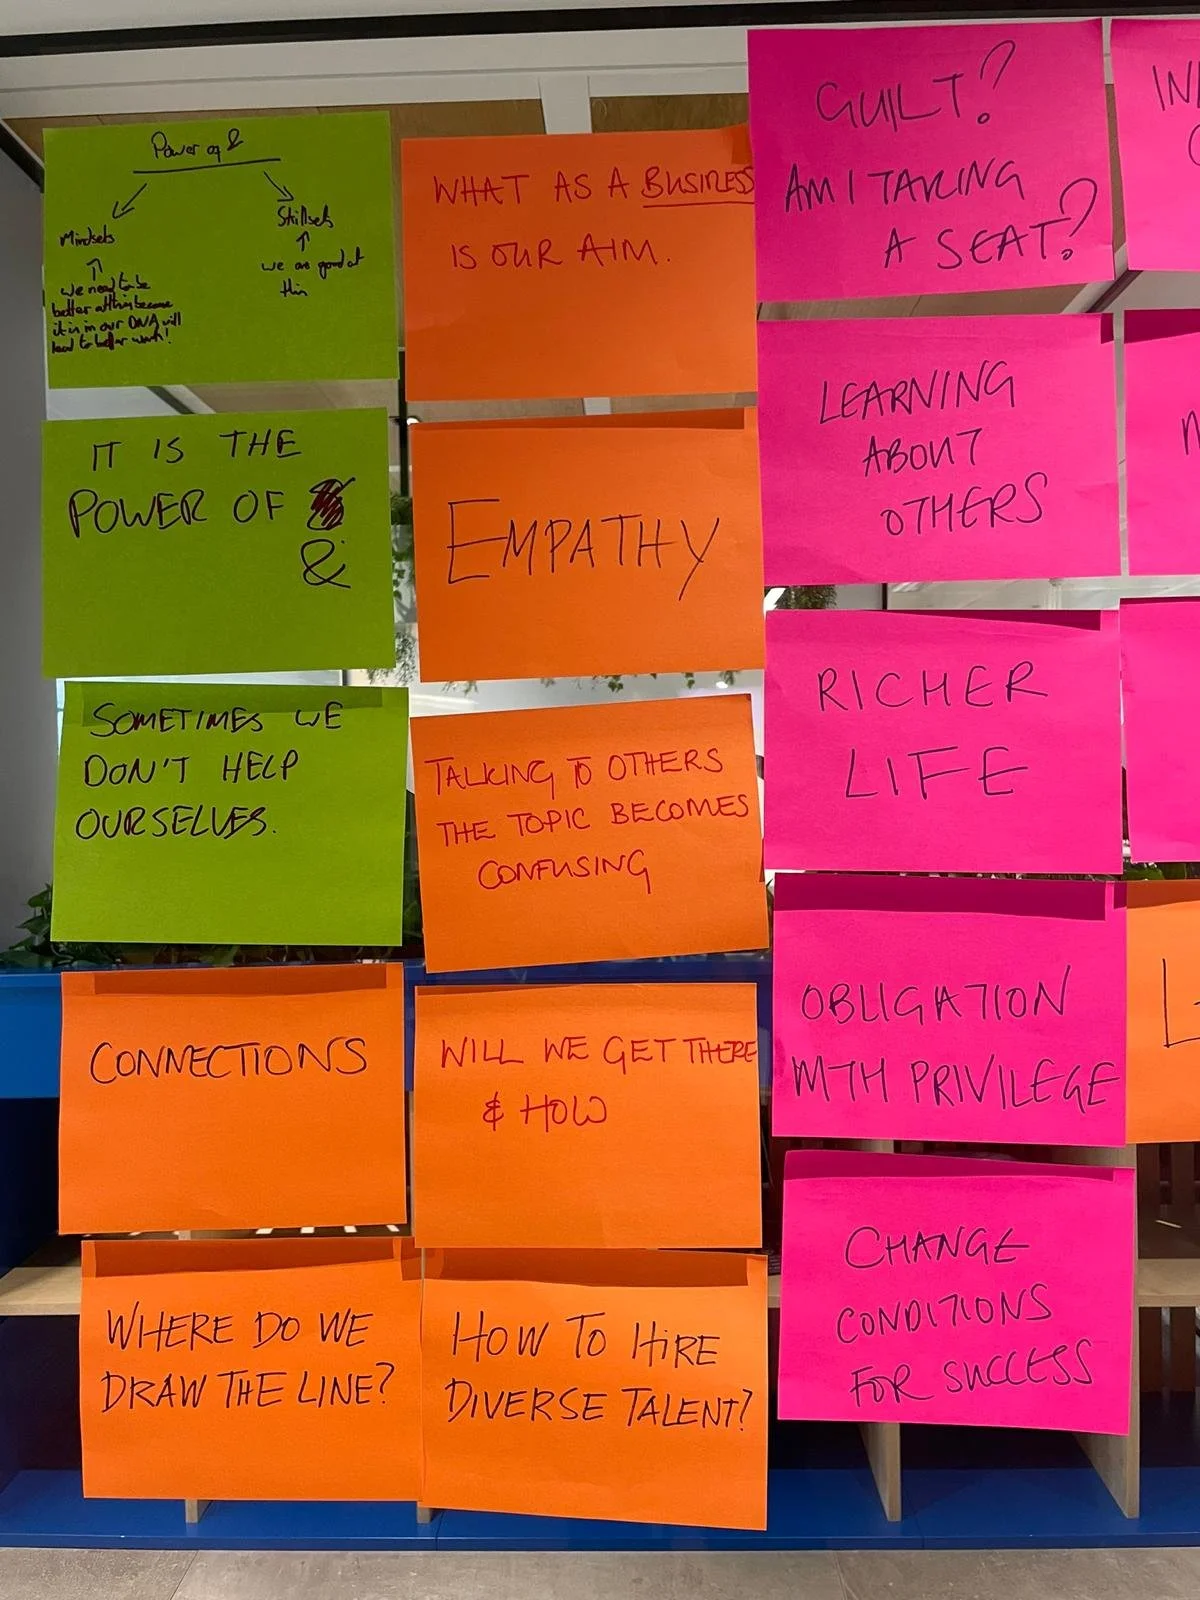 Power of &
Mindsets
we need to be
better at this because
it is in our DNA will
lead to better work!
Skillsets
we are good at
this
IT IS THE
POWER OF
&
SOMETIMES WE
DON'T HELP
OURSELVES.
CONNECTIONS
WHERE DO WE
DRAW THE LINE?
WHAT AS A BUSINESS
IS OUR AIM.
EMPATHY
TALKING TO OTHERS
THE TOPIC BECOMES
CONFUSING
WILL WE GET THERE
& HOW
HOW TO HIRE
DIVERSE TALENT?
GUILT?
AM I TAKING
A SEAT?
LEARNING
ABOUT
OTHERS
RICHER
LIFE
OBLIGATION
WITH PRIVILEGE
CHANGE
CONDITIONS
FOR SUCCESS